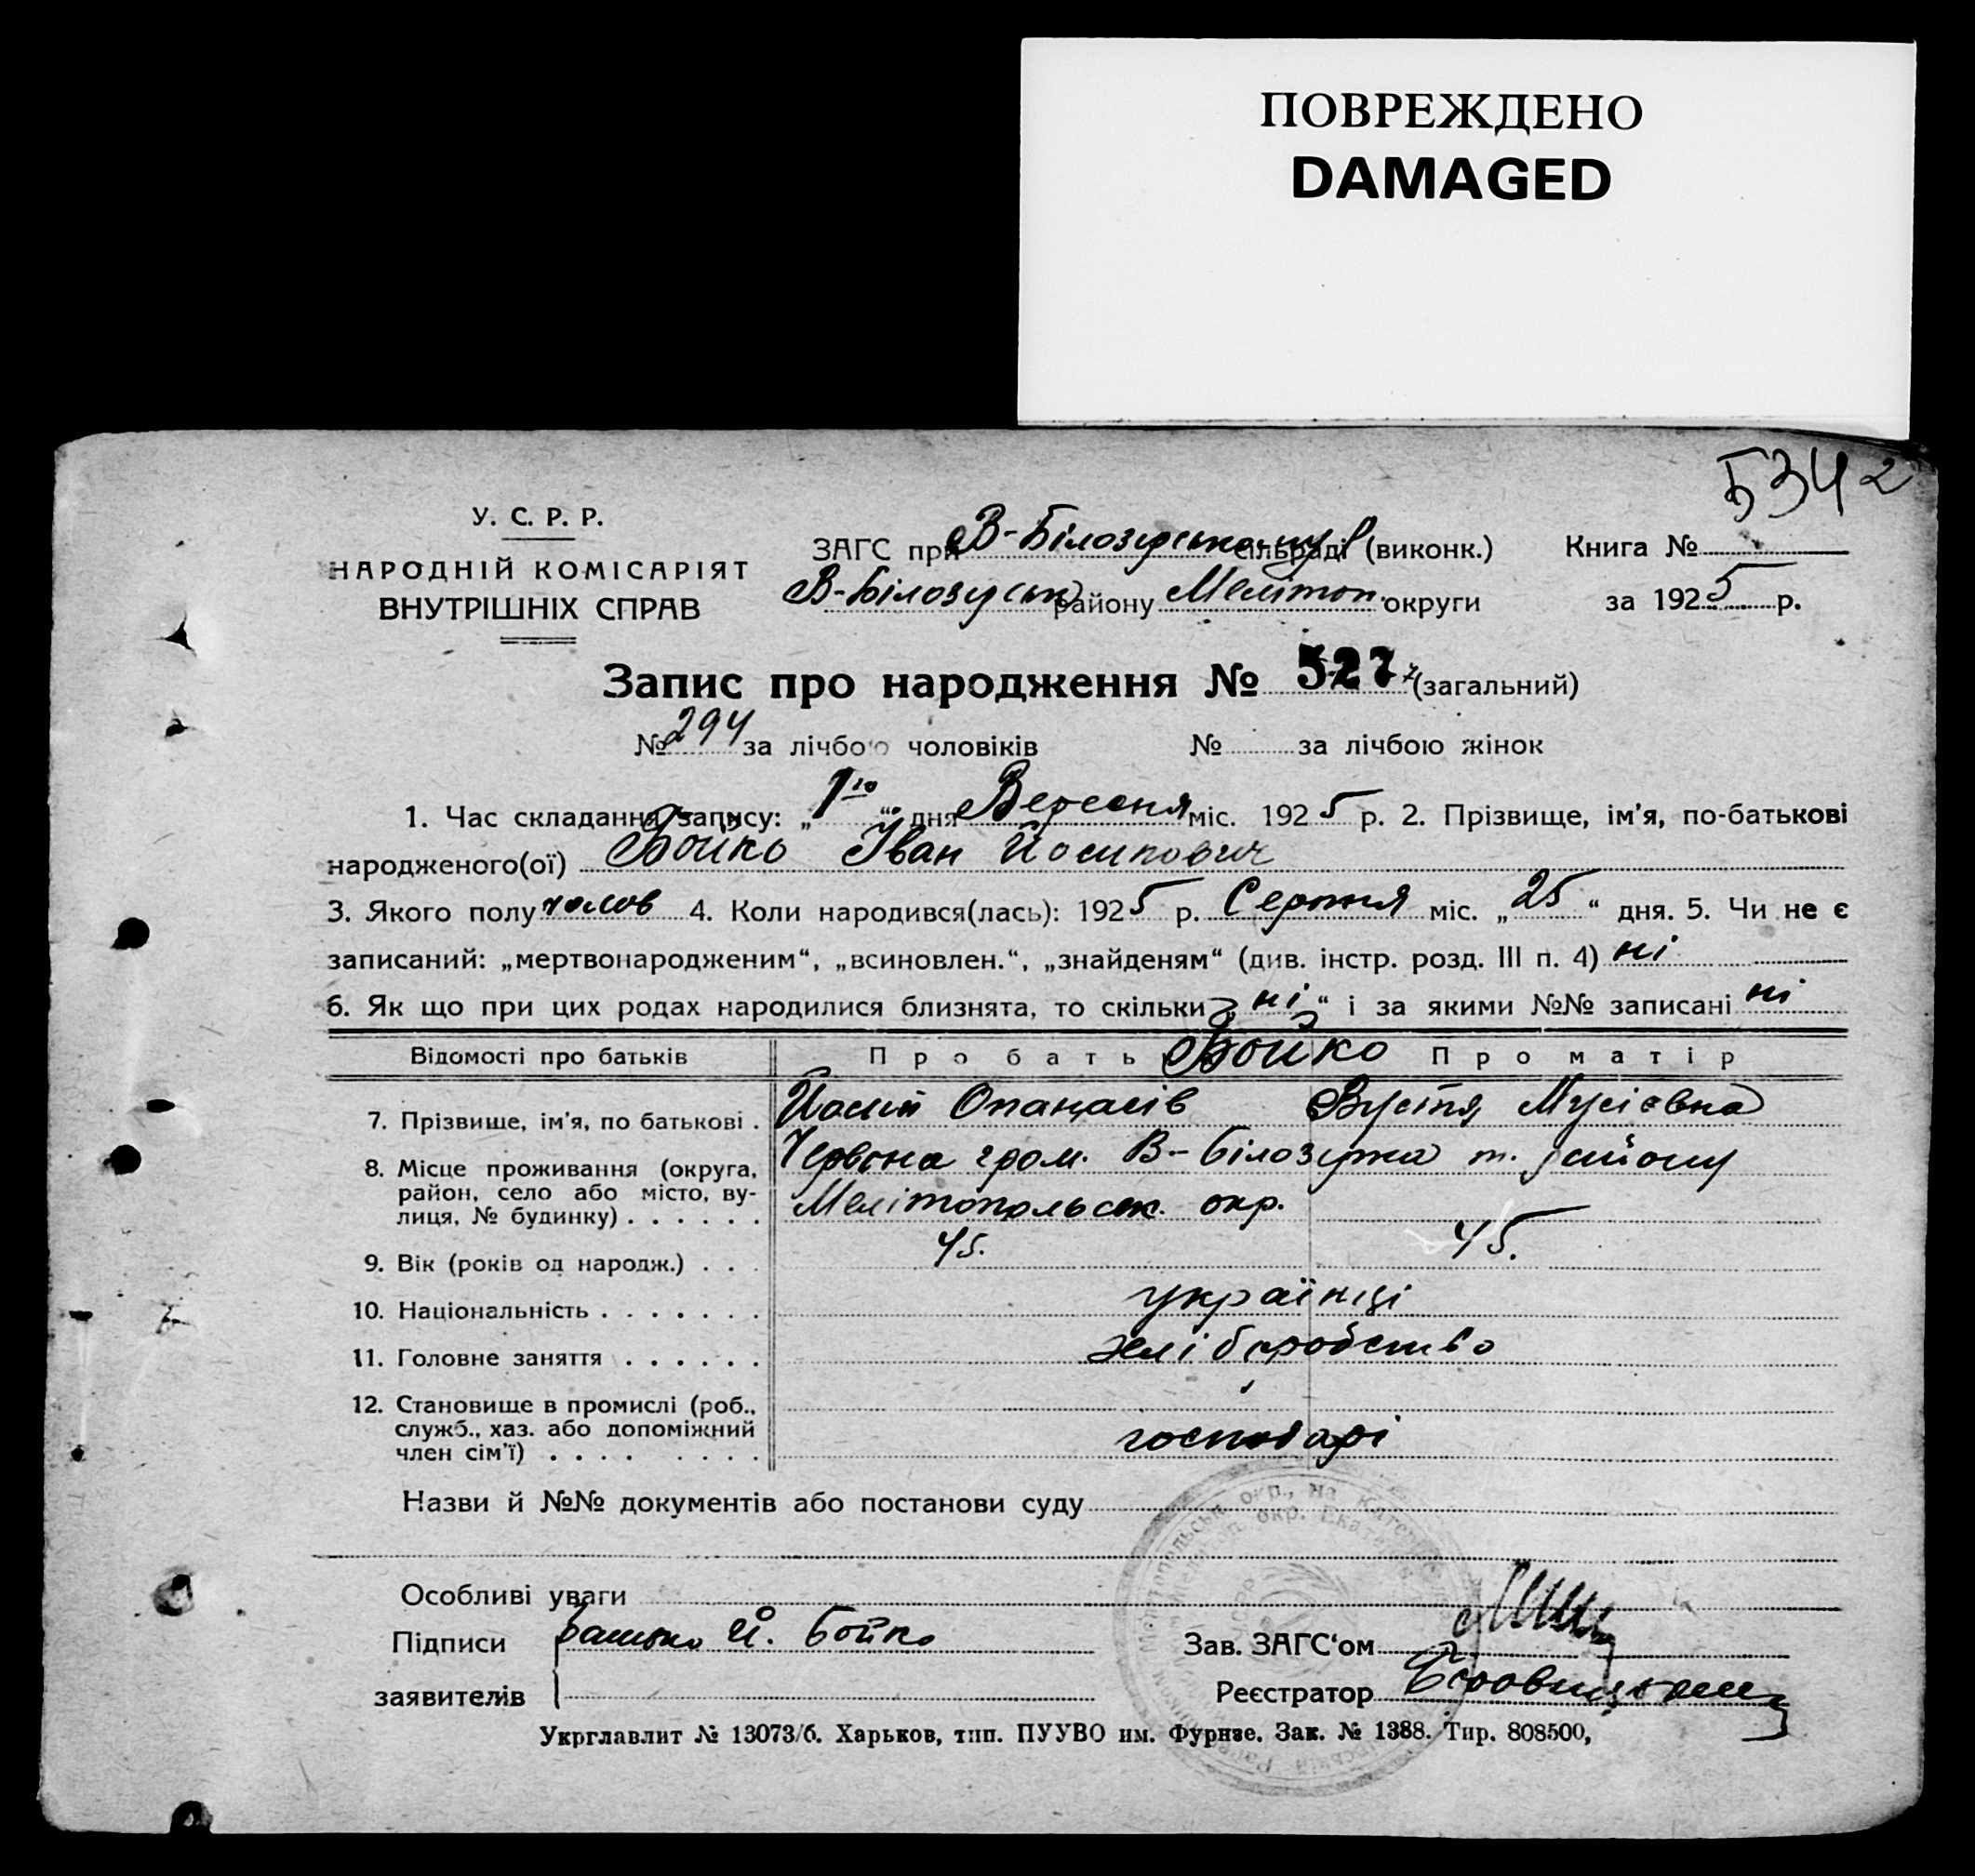 ПОВРЕЖДЕНО
DAMAGED
5342
У. С. Р. Р.
НАРОДНІЙ КОМІСАРІЯТ
ВНУТРІШНІХ СПРАВ
ЗАГС при В-Білозерському сільраді (виконк.) Книга №
В-Білозерськ району Мелітоп. округи за 1925 р.
Запис про народження № 527 (загальний)
№ 294 за лічбою чоловіків № за лічбою жінок
1. Час складання запису: „1го“ дня Вересня міс. 1925 р. 2. Прізвище, ім'я, по-батькові
народженого(ої) Бойко Іван Йосипович
3. Якого полу чолов 4. Коли народився(лась): 1925 р. Серпня міс. „25“ дня. 5. Чи не є
записаний: „мертвонародженим“, „всиновлен.“, „знайденям“ (див. інстр. розд. III п. 4) ні
6. Як що при цих родах народилися близнята, то скільки „ні“ і за якими №№ записані ні
Відомості про батьків Про батька Бойко Про матір
7. Прізвище, ім'я, по батькові . Йосип Опанасів Вустя Мусієвна
8. Місце проживання (округа, район, село або місто, ву-
лиця, № будинку) . . . . . . Червона гром. В-Білозерка т. району
Мелітопольськ. окр.
9. Вік (років од народж.) . . . 45. 45.
10. Національність . . . . . . . українці
11. Головне заняття . . . . . . хліборобство
12. Становище в промислі (роб.,
служб., хаз. або допоміжний
член сім'ї) . . . . . . . . господарі
Назви й №№ документів або постанови суду
Особливі уваги
Підписи Батько Й. Бойко Зав. ЗАГС'ом
заявителів Реєстратор
Укрглавлит № 13073/б. Харьков, тип. ПУУВО им. Фурнзе. Зак. № 1388. Тир. 808500,